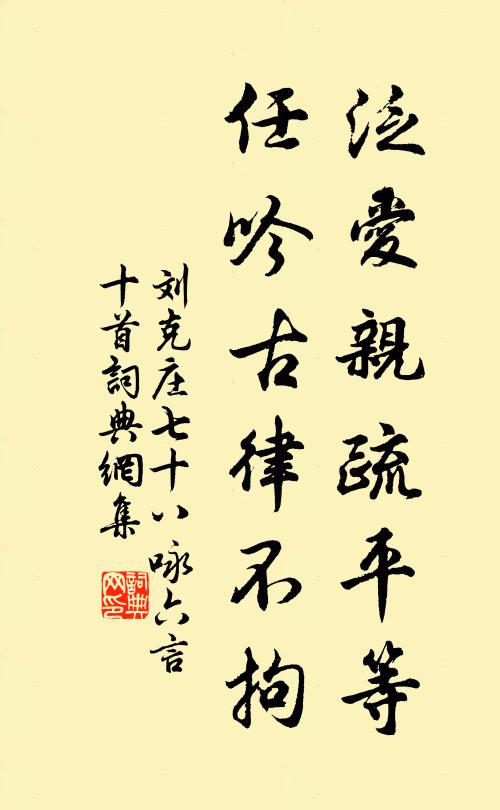 泛愛親疏平等
任吟古律不拘
刘克庄七十八咏六言
十首詞典網集
詞典网印